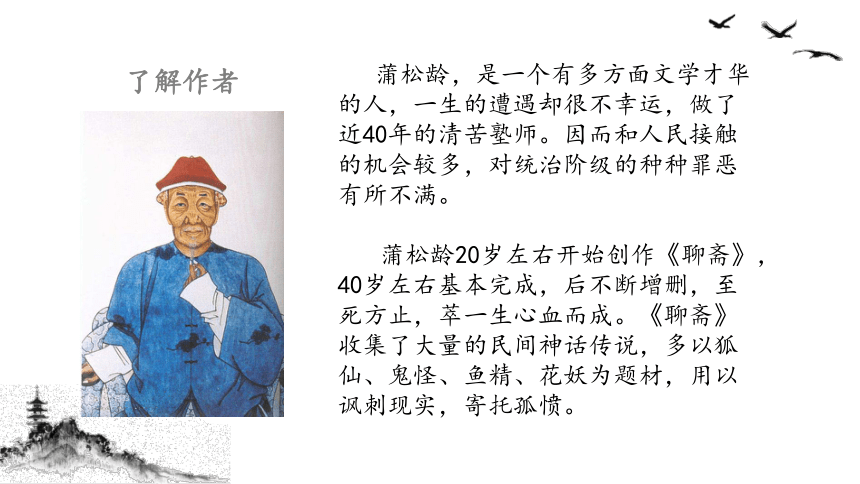 了解作者
蒲松龄，是一个有多方面文学才华
的人，一生的遭遇却很不幸运，做了
近40年的清苦塾师。因而和人民接触
的机会较多，对统治阶级的种种罪恶
有所不满。
蒲松龄20岁左右开始创作《聊斋》，
40岁左右基本完成，后不断增删，至
死方止，萃一生心血而成。《聊斋》
收集了大量的民间神话传说，多以狐
仙、鬼怪、鱼精、花妖为题材，用以
讽刺现实，寄托孤愤。